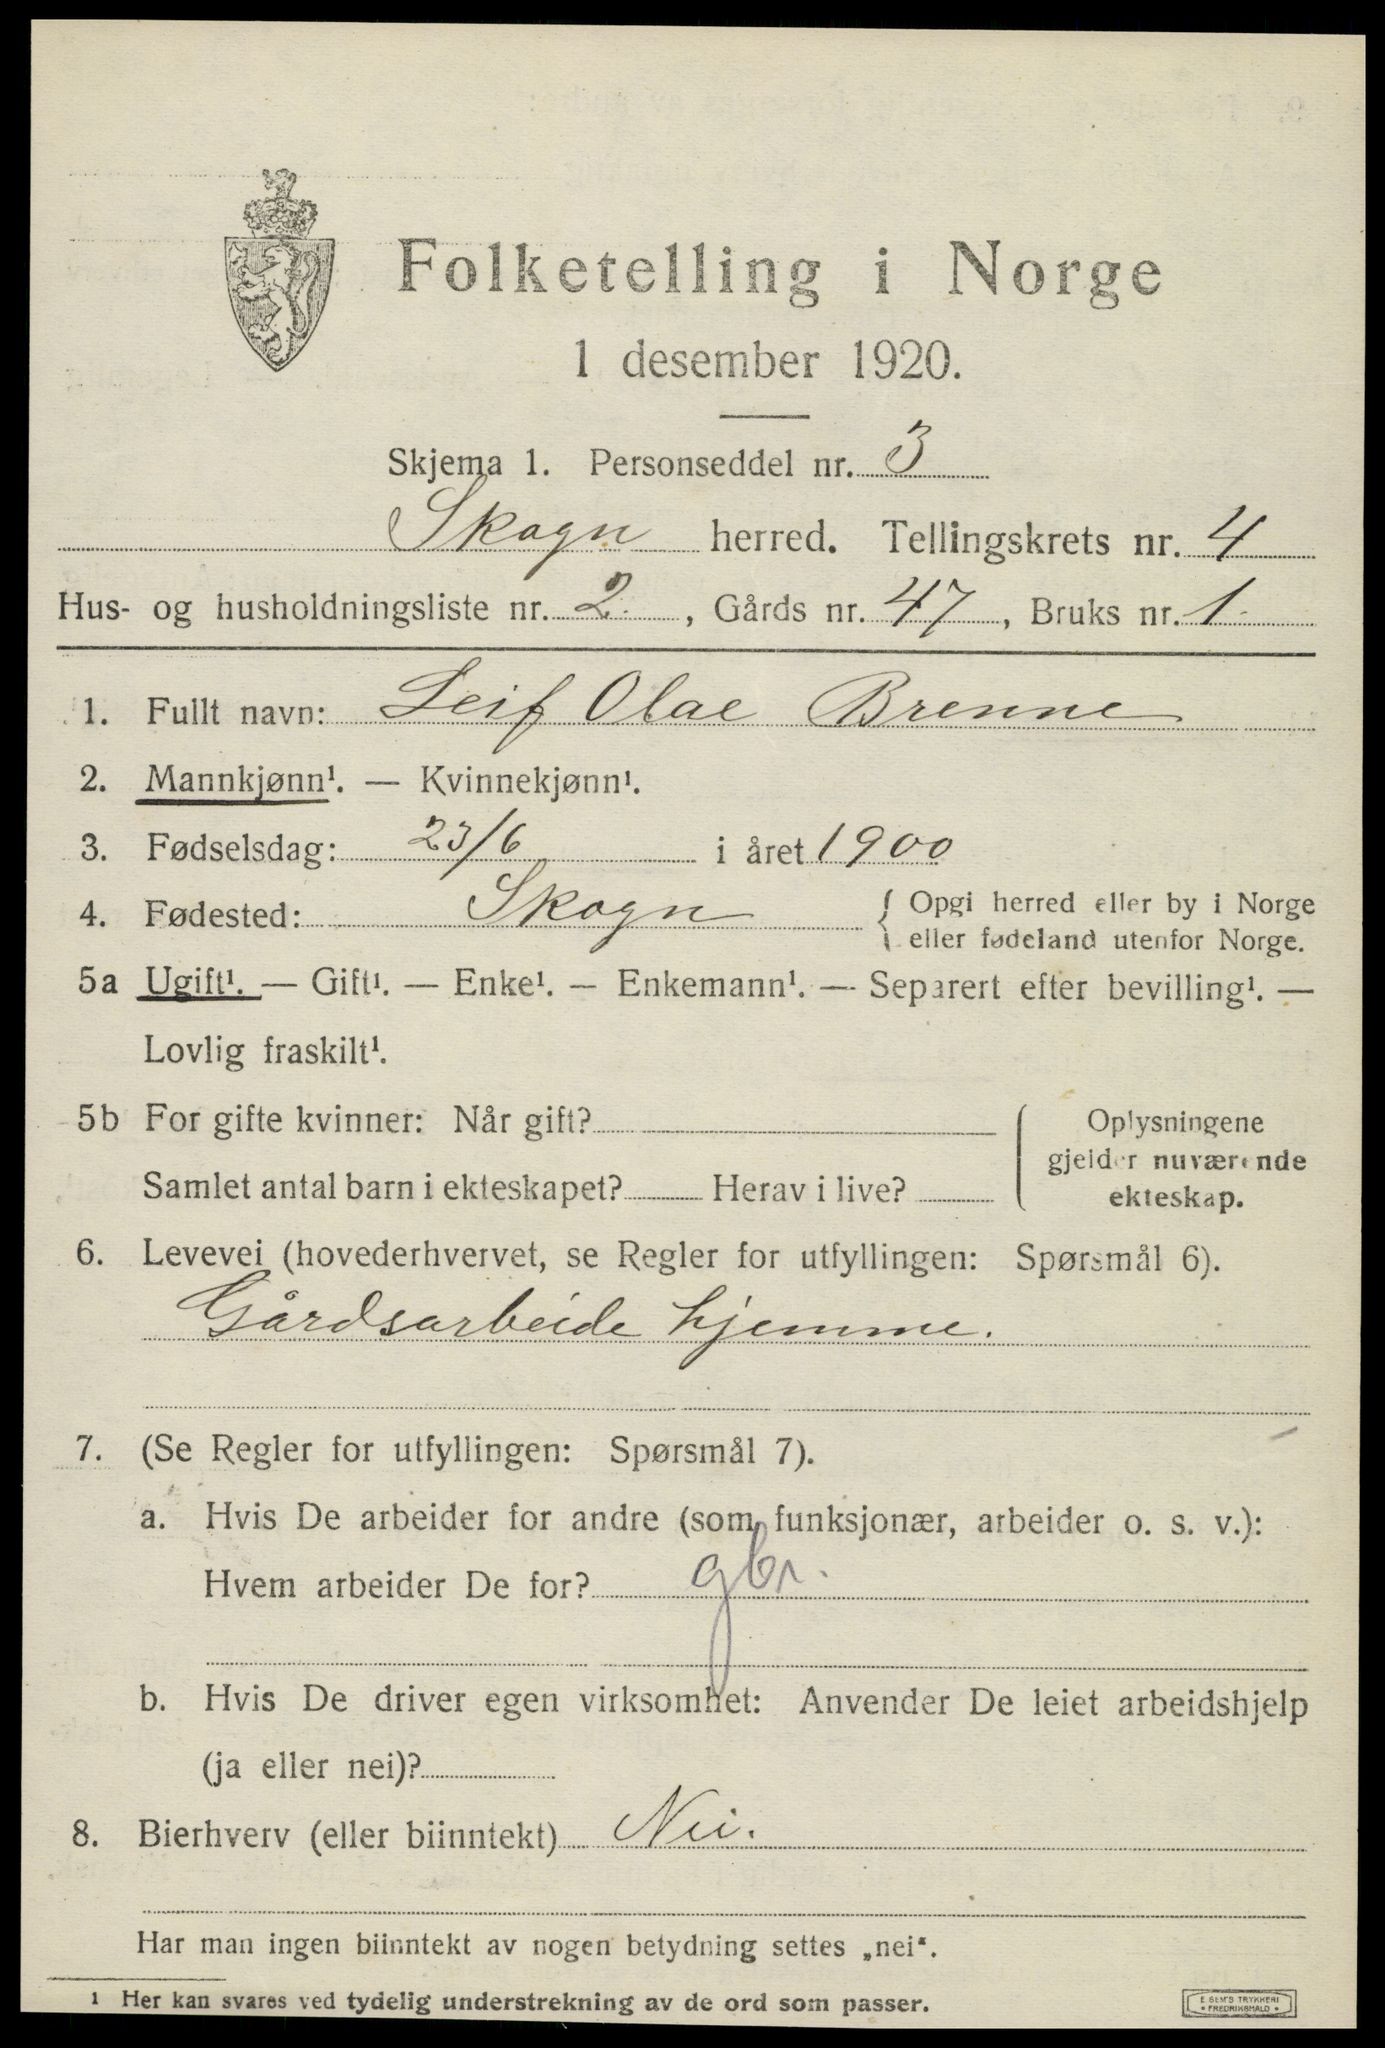 Folketelling i Norge
1 desember 1920.
Skjema 1. Personseddel nr. 3
Skogn herred. Tellingskrets nr. 4
Hus- og husholdningsliste nr. 2. , Gårds nr. 47, Bruks nr. 1.
1. Fullt navn: Leif Olae Brenne
2. Mannkjønn¹. — Kvinnekjønn¹.
3. Fødselsdag: 23/6 i året 1900
4. Fødested: Skogn { Opgi herred eller by i Norge
eller fødeland utenfor Norge.
5a Ugift¹. — Gift¹. — Enke¹. — Enkemann¹. — Separert efter bevilling¹. —
Lovlig fraskilt¹.
5b For gifte kvinner: Når gift?
Samlet antal barn i ekteskapet? Herav i live?
Oplysningene
gjelder nuværende
ekteskap.
6. Levevei (hovederhvervet, se Regler for utfyllingen: Spørsmål 6).
Gårdsarbeide hjemme.
7. (Se Regler for utfyllingen: Spørsmål 7).
a. Hvis De arbeider for andre (som funksjonær, arbeider o. s. v.):
Hvem arbeider De for? gbr.
b. Hvis De driver egen virksomhet: Anvender De leiet arbeidshjelp
(ja eller nei)?
8. Bierhverv (eller biinntekt) Nei.
Har man ingen biinntekt av nogen betydning settes „nei“.
1 Her kan svares ved tydelig understrekning av de ord som passer.
E. SEM'S TRYKKERI
• FREDRIKSHALD •